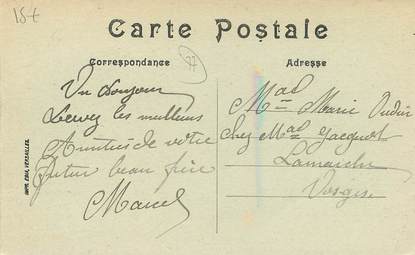 15t
77
Carte Postale
Correspondance
Adresse
Un Bonjour
Recevez les meilleurs
Amitiés de votre
futur beau frère
Marcel
Mad Marie
Chez Mad Jacquot
Lamarche
Vosges
IMP. EDIA, VERSAILLES